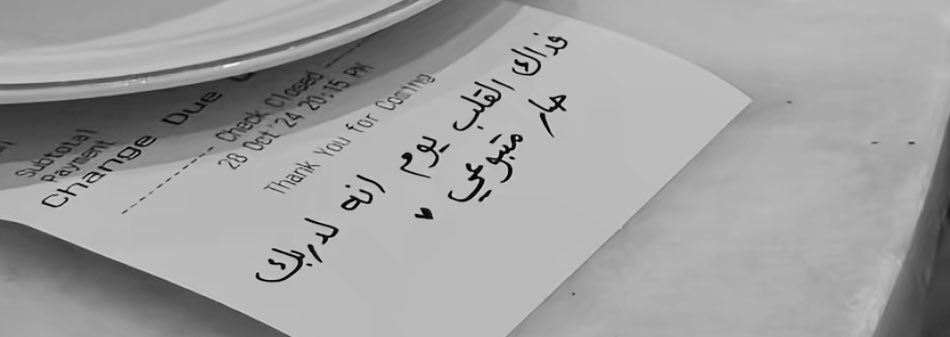 Subtotal
Payment
Change Due
Check Closed
28 Oct'24 20:15 PM
Thank You for Coming
فداك القلب يوم انه لدربك
صار متبوعي